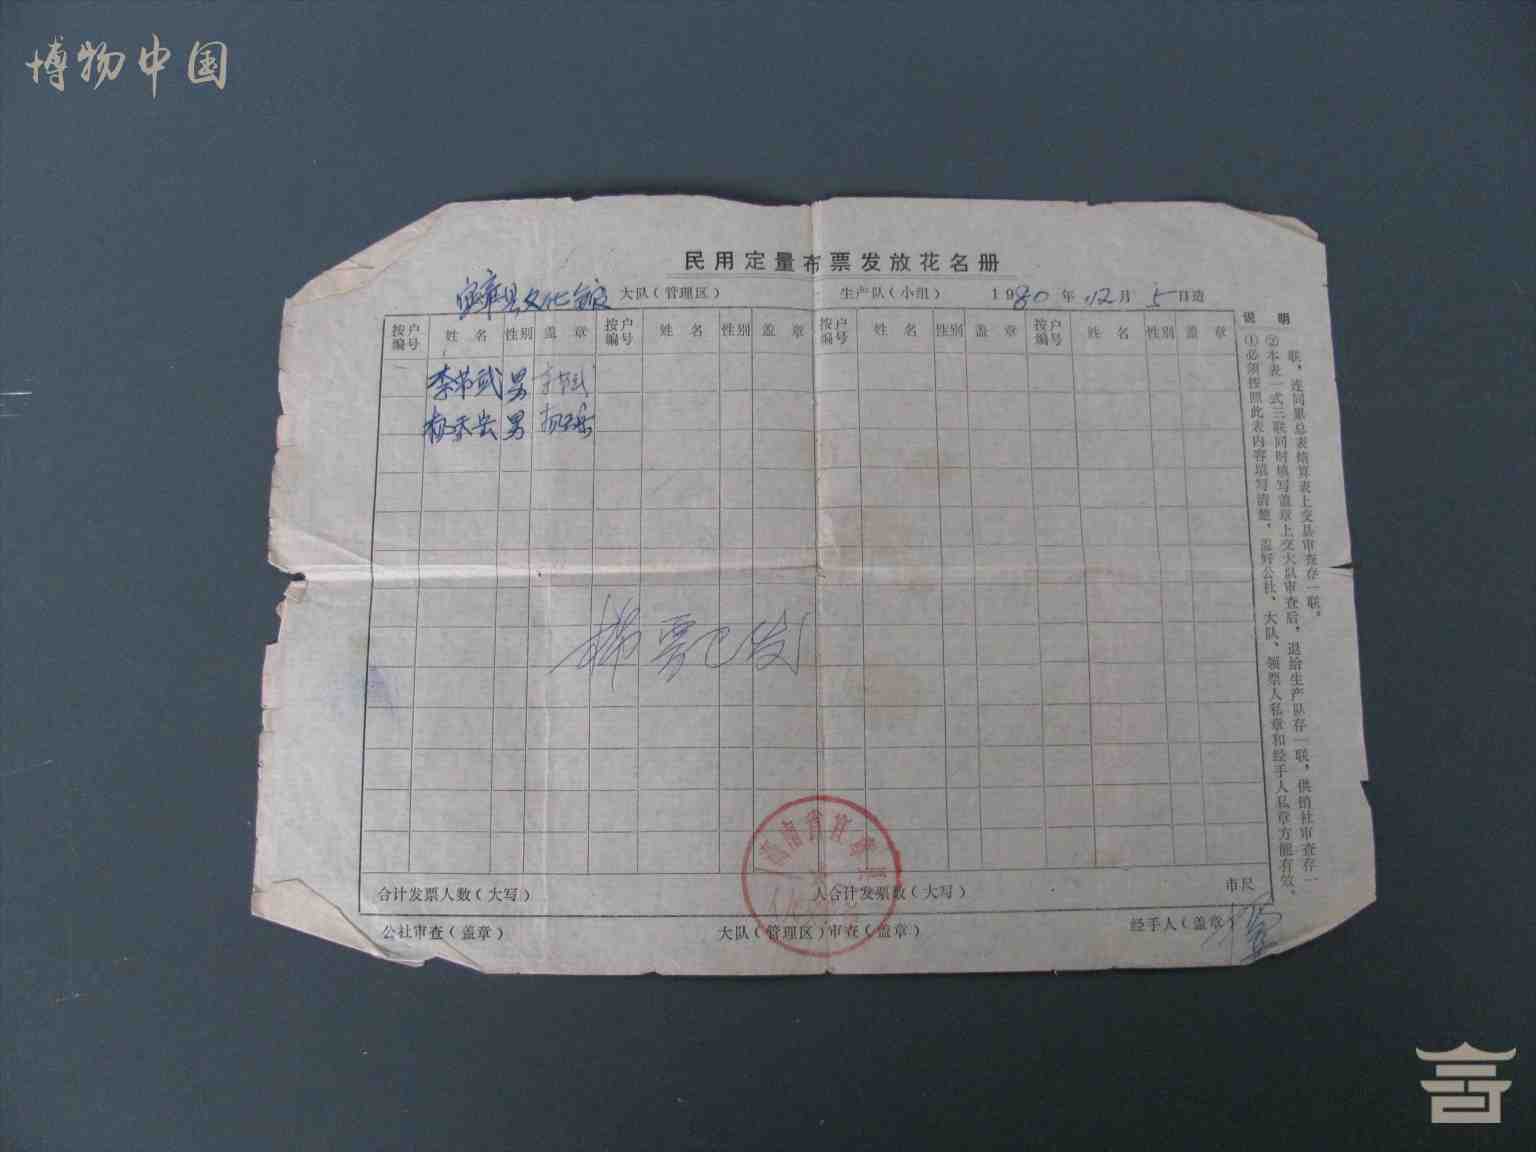 博物中国
民用定量布票发放花名册
宜章县文化馆 大队(管理区) 生产队(小组) 1980年12月5日造
按户编号 姓名 性别 盖章 按户编号 姓名 性别 盖章 按户编号 姓名 性别 盖章 按户编号 姓名 性别 盖章
李节武 男 李节武
男
票已发
合计发票人数(大写) 人合计发票数(大写) 市尺
公社审查(盖章) 大队(管理区)审查(盖章) 经手人(盖章)
说明
①必须按照此表内容填写清楚,盖好公社、大队、领票人私章和经手人私章方能有效。
②本表一式三联同时填写盖章上交大队审查后,退给生产队存一联,供销社审查存一
联,连同累总表结算表上交县审查存一联。
湖南省宜章县